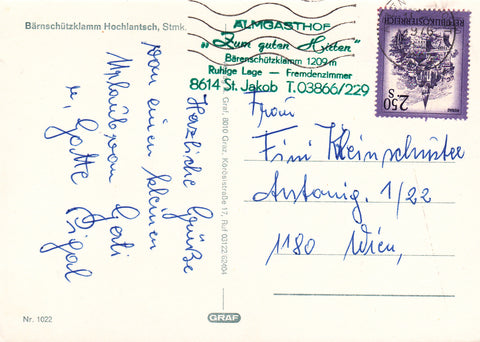 Bärnschützklamm Hochlantsch, Stmk.
ALMGASTHOF
„Zum guten Hirten"
Bärenschützklamm 1209 m
Ruhige Lage — Fremdenzimmer
8614 St. Jakob T. 03866/229
REPUBLIK ÖSTERREICH
2.50
S
Herzliche Grüße
von einen kleinen
Urlaub von Gerti
u. Gatte
Graf, 8010 Graz, Körösistraße 17, Ruf 03122 62404
Frau
Fini Kleinschuster
Antonig. 1/22
1180 Wien,
Nr. 1022
GRAF